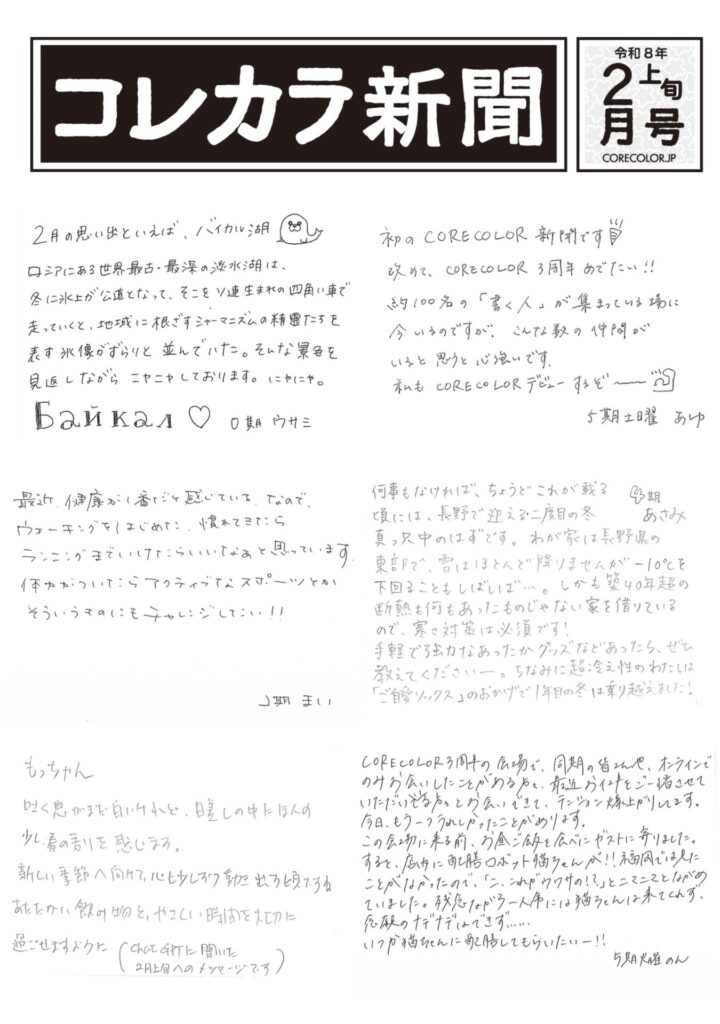 コレカラ新聞
令和8年
2月上旬号
CORECOLOR.JP
2月の思い出といえば、バイカル湖
ロシアにある世界最古・最深の淡水湖は、
冬に氷上が公道となって、そこをソ連生まれの四角い車で
走っていくと、地域に根ざすシャーマニズムの精霊たちを
表す氷像がずらりと並んでいた。そんな景色を
見返しながらニヤニヤしております。にやにや。
Байкал♡ 0期 ウサミ
初のCORECOLOR新聞です
改めて、CORECOLOR 3周年めでたい!!
約100名の「書く人」が集まっている場に
今いるのですが、こんな数の仲間が
いると思うと心強いです.
私もCORECOLORデビューするぞ〜〜
5期土曜 あゆ
最近、健康が1番だと感じている。なので、
ウォーキングをはじめた。慣れてきたら
ランニングまでいけたらいいなぁと思っています.
体力がついたらアクティブなスポーツとか
そういうものにもチャレンジしたい!!
期 まい
何事もなければ、ちょうどこれが載る
頃には、長野で迎える二度目の冬
真っ只中のはずです。わが家は長野県の
東部で、雪はほとんど降りませんが-10℃を
下回ることもしばしば…。しかも築40年超の
断熱も何もあったものじゃない家を借りている
ので、寒さ対策は必須です!
手軽で強力なあったかグッズなどあったら、ぜひ
教えてくださいー。ちなみに超冷え性のわたしは
「ご自愛ソックス」のおかげで1年目の冬は乗り越えました!
期
あさみ
もっちゃん
吐く息がまだ白いけれど、日差しの中にほんの
少し春の香りを感じます。
新しい季節へ向けて、心も少しずつ動き出す頃ですね
あたたかい飲み物と、やさしい時間を大切に
過ごせますように
(ChatGPTに聞いた
2月上旬へのメッセージです)
CORECOLOR3周年の会場で、同期の皆さんや、オンラインで
のみお会いしたことがある方々、最近お仕事をご一緒させて
いただいてる方々とお会いできて、テンション爆上がりしてます。
今日、もう一つうれしかったことがあります。
この会場に来る前、お昼ご飯を食べにガストに寄りました。
すると、店内に配膳ロボット猫ちゃんが!!福岡では見た
ことがなかったので、「こ、これがウワサの!?」とニマニマとながめ
ていました。残念ながら一人席には猫ちゃんは来てくれず、
念願のナデナデはできず……
いつか猫ちゃんに配膳してもらいたいー!!
5期火曜 のん